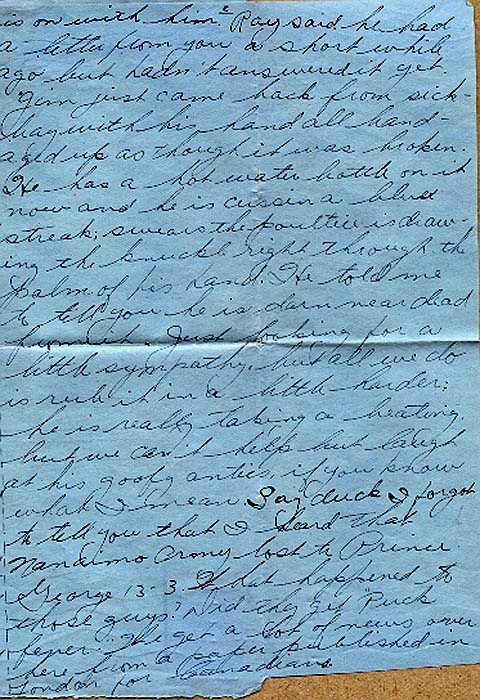 is on with him." Ray said he had
a letter from you a short while
ago but hadn't answered it yet.
Jim just came back from sick-
bay with his hand all band-
aged up as though it was broken.
He has a hot water bottle on it
now and he is cussin a blue
streak; swears the poultice is draw-
ing the knuckle right through the
palm of his hand. He told me
to tell you he is darn near dead
from it. Just looking for a
little sympathy, but all we do
is rub it in a little harder;
he is really taking a beating,
but we can't help but laugh
at his goofy antics, if you know
what I mean. Say duck I forgot
to tell you that I heard that
Nanaimo Army lost to Prince
George 13-3. What happened to
those guys? Did they get "Puck
fever." We get a lot of news over
here from a paper published in
London for Canadians